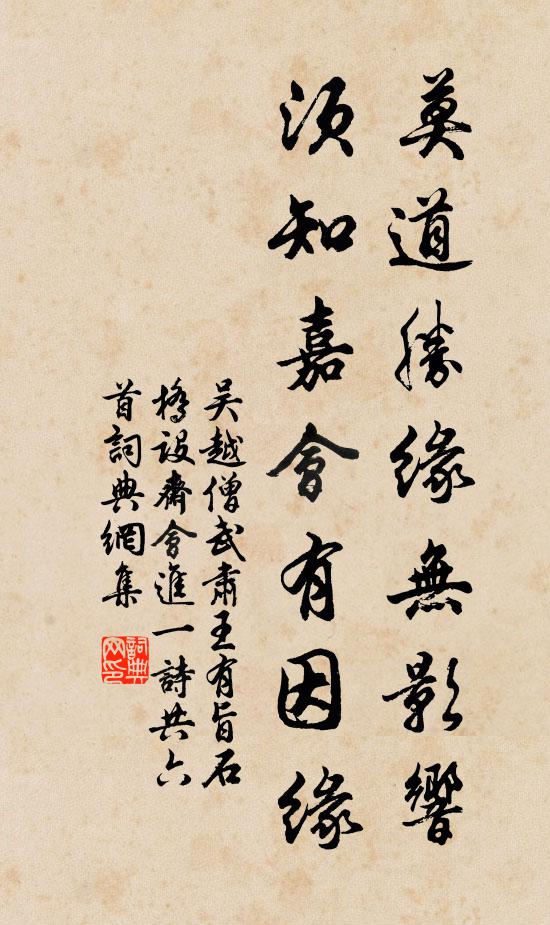 莫道勝緣無影響
須知嘉會有因緣
吴越僧武肅王有旨石
橋設齋會進一詩共六
首詞典網集
詞典网印